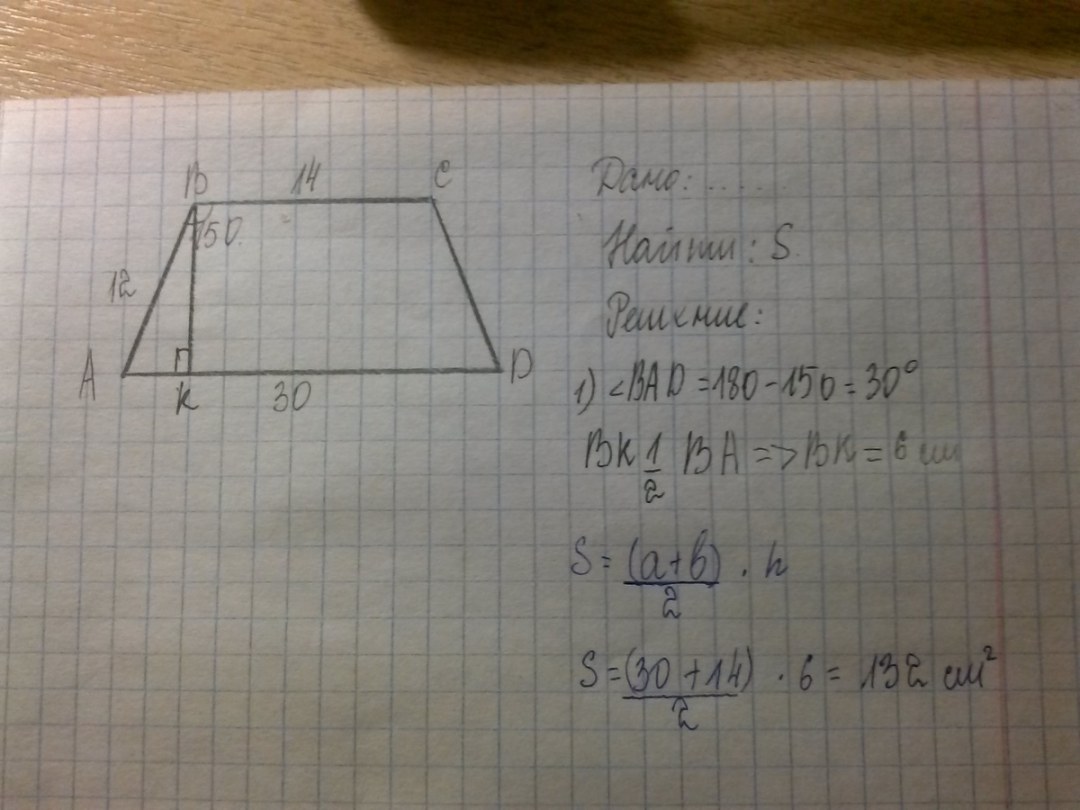 B 14 C
150
12
A K 30 D
Дано: .....
Найти: S
Решение:
1) <BAD = 180 - 150 = 30°
BK 1/2 BA => BK = 6 см
S = (a+b)/2 · h
S = (30+14)/2 · 6 = 132 см²